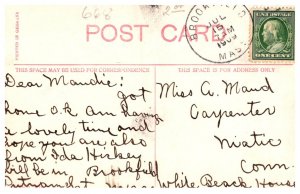 668
BROOKFIELD
JUL
MASS
POST CARD
THIS SPACE MAY BE USED FOR CORRESPONDENCE
THIS SPACE IS FOR ADDRESS ONLY
ONE CENT
Dear Maudie: got
home O.K. Am having
a lovely time and
hope you are also
from Ida Hickey
will be in Brookfield
Miss A. Maud
Carpenter
Niatic
Conn.
White Beach House